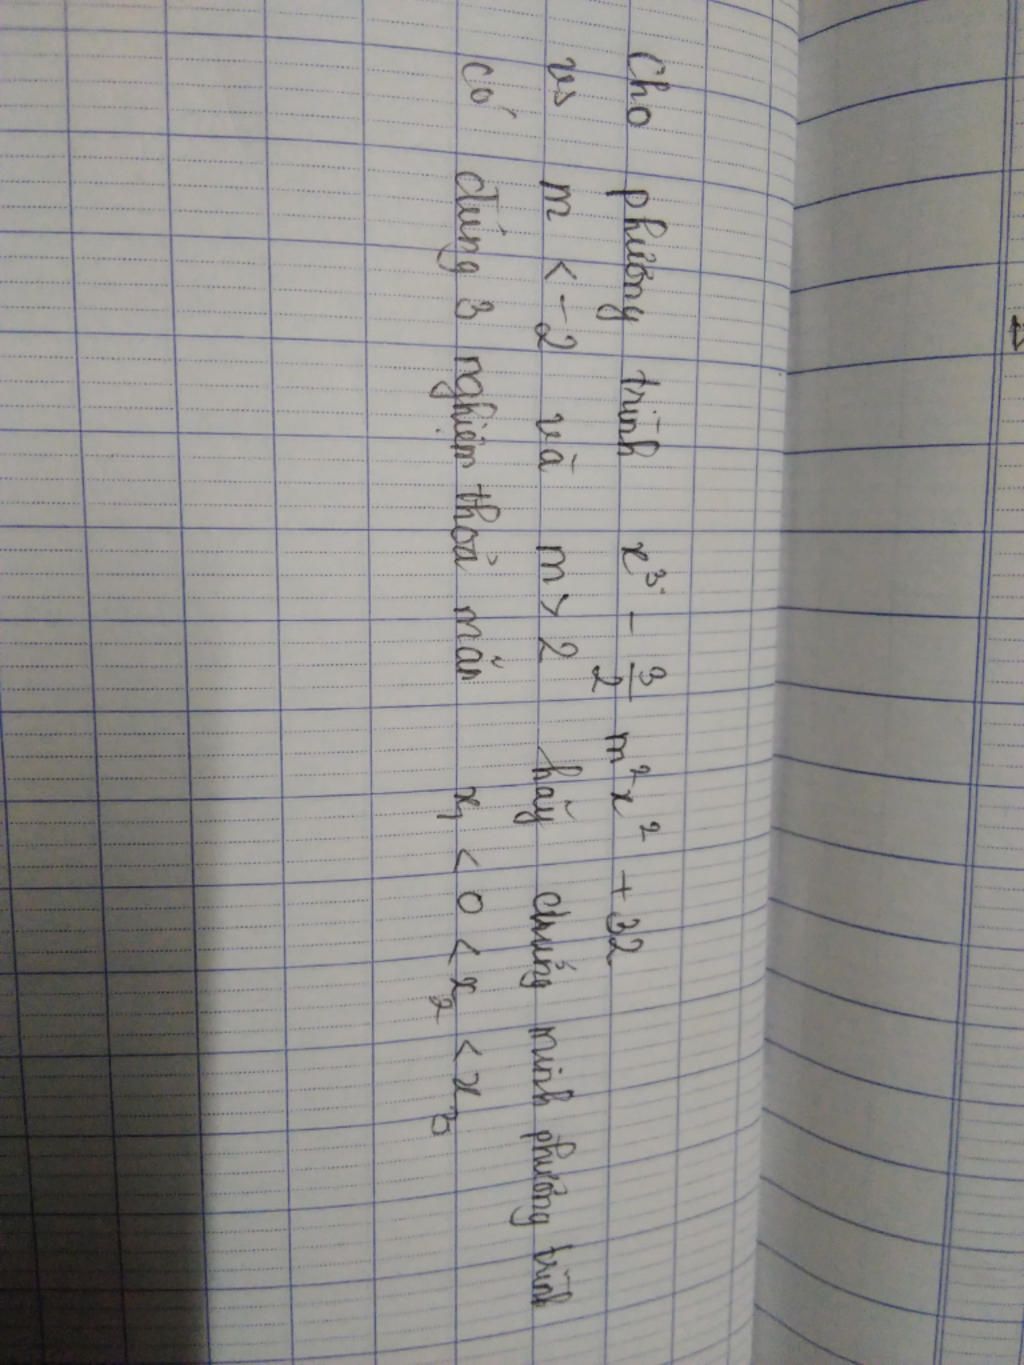 Cho phương trình x³ - 3/2 m²x² + 32
vs m < -2 và m > 2 hãy chứng minh phương trình
có đúng 3 nghiệm thoả mãn x₁ < 0 < x₂ < x₃